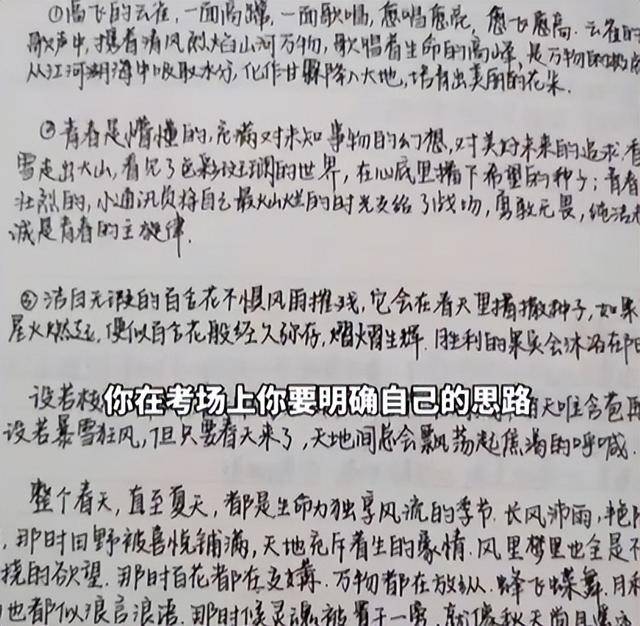 ①高飞的云雀,一面高蹿,一面歌唱,愈唱愈昂,愈飞愈高.云雀的
歌声中,携着清风烈焰山河万物,歌唱着生命的高峰,是万物的
从江河湖海中吸取水分,化作甘霖降入大地,培育出美丽的花朵.
②青春是懵懂的,充满对未知事物的幻想,对美好未来的追求.香
雪走出大山,看见了色彩斑斓的世界,在心底里播下希望的种子;青春
壮烈的,小通讯员将自己最灿烂的时光交给了战场,勇敢无畏,纯洁
诚是青春的主旋律.
③洁白无瑕的百合花不惧风雨摧残,它会在春天里播撒种子,如果
星火燃起,便似百合花般经久弥存,熠熠生辉.胜利的果实会沐浴在阳
你在考场上你要明确自己的思路
设若枝 天唯含苞
设若暴雪狂风,但只要春天来了,天地间总会飘荡起焦渴的呼喊.
整个春天,直至夏天,都是生命力独享风流的季节.长风沛雨,艳阳
,那时田野被喜悦铺满,天地充斥着生的豪情.风里梦里也全是不
挠的欲望.那时百花都在交媾.万物都在放纵.蜂飞蝶舞、月
也都似浪言浪语.那时候灵魂被置于一旁,就像秋天尚且遥远